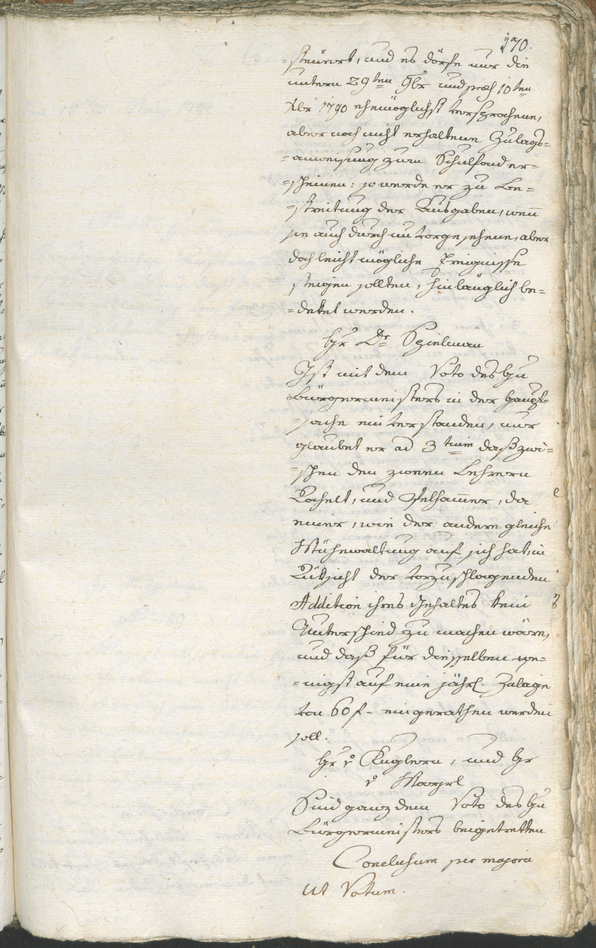 170.
-steuert, und es dörfe nur die
unterm 29ten 9br und præs. 10ten
Xbr 1790 ehemöglichst versprochene,
aber noch nicht erhaltene Zulags-
-anweisung zum Schulfond er-
-scheinen: so werde er zu Be-
-streitung der Ausgaben, wenn
sie auch durch unvorgesehene, aber
doch leicht mögliche Ereignisse
steigen sollten, hinlänglich be-
-deket werden.
Hr Dr Spielman
Ist mit dem Voto des Hn
Bürgermeisters in der Haupt-
-sache einverstanden, nur
glaubet er ad 3tium daß zwi-
-schen den zween Lehrern
Bachelt, und Felsamer, da
einer, wie der andere gleiche
Mühewaltung auf sich hat, in
Rüksicht der vorzuschlagenden
Addition ihres Gehaltes kein
Unterschied zu machen wäre,
und daß für dieselben we-
-nigst auf eine jährl. Zulage
von 60 f. eingerathen werden
soll.
Hr v Kuglern, und Hr
v Mayrl
Sind ganz dem Voto des Hn
Bürgermeisters beigetretten
Conclusum per majora
Ut Votum.